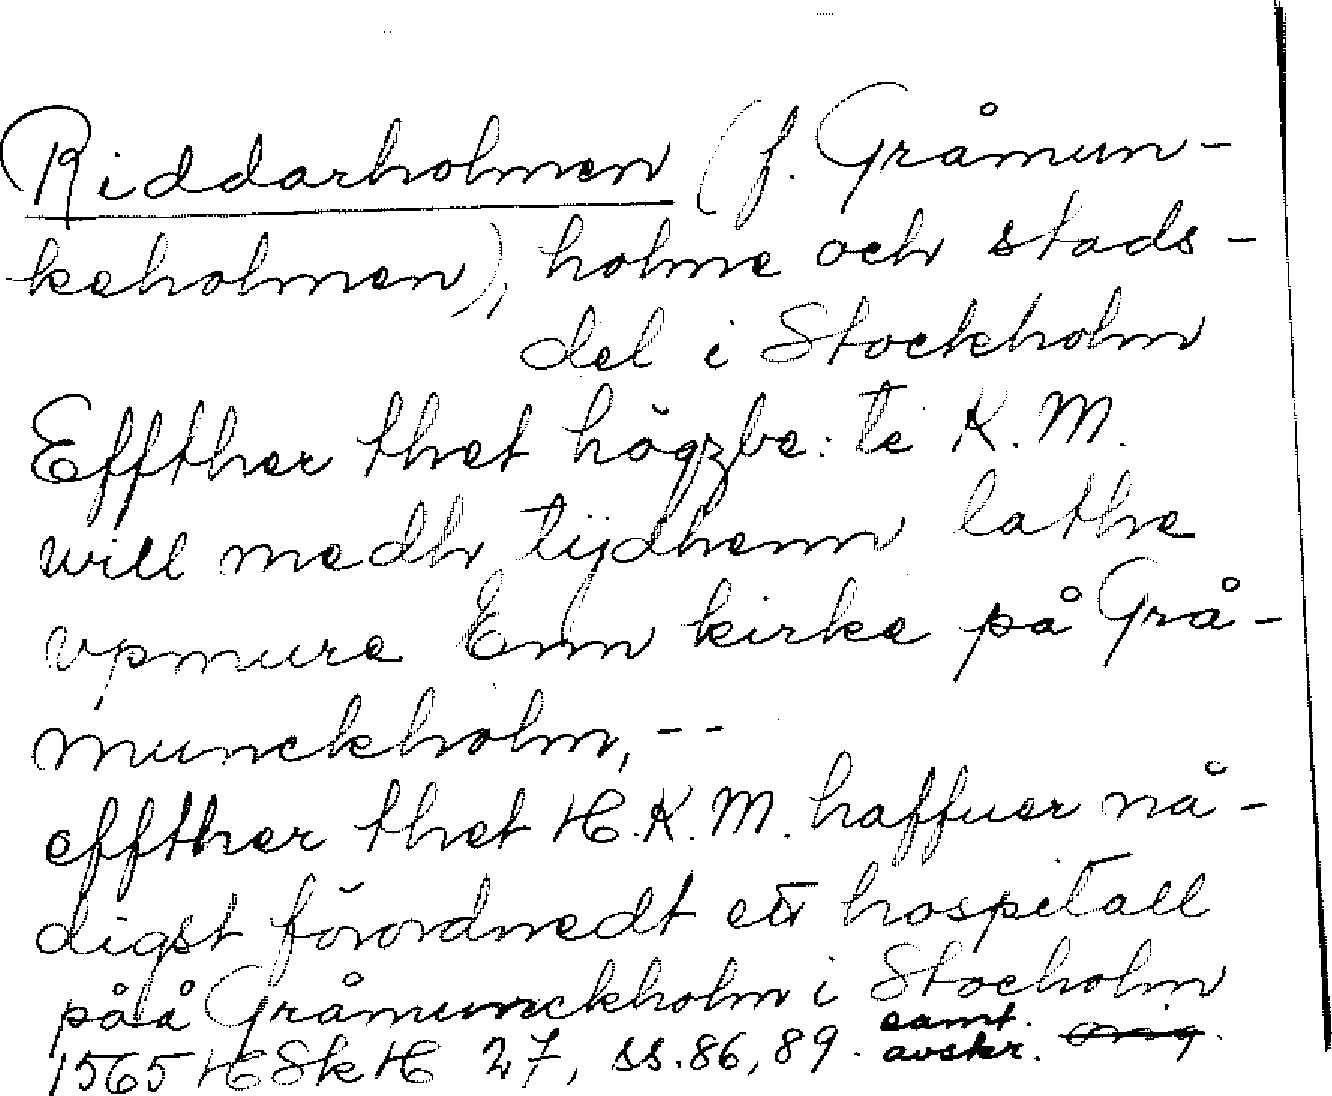 Riddarholmen (f. Gråmun-
keholmen), holme och stads-
del i Stockholm
Effther thet högzbe: te K. M.
will medh tijdhenn lathe
vpmure Enn kirke på Grå-
munckholm, --
effther thet H.K.M. haffuer nå-
digst förordnedt ett hospitall
påå Gråmunckholm i Stocholm
1565 HSkH 27, ss. 86, 89. samt. avskr. orig.